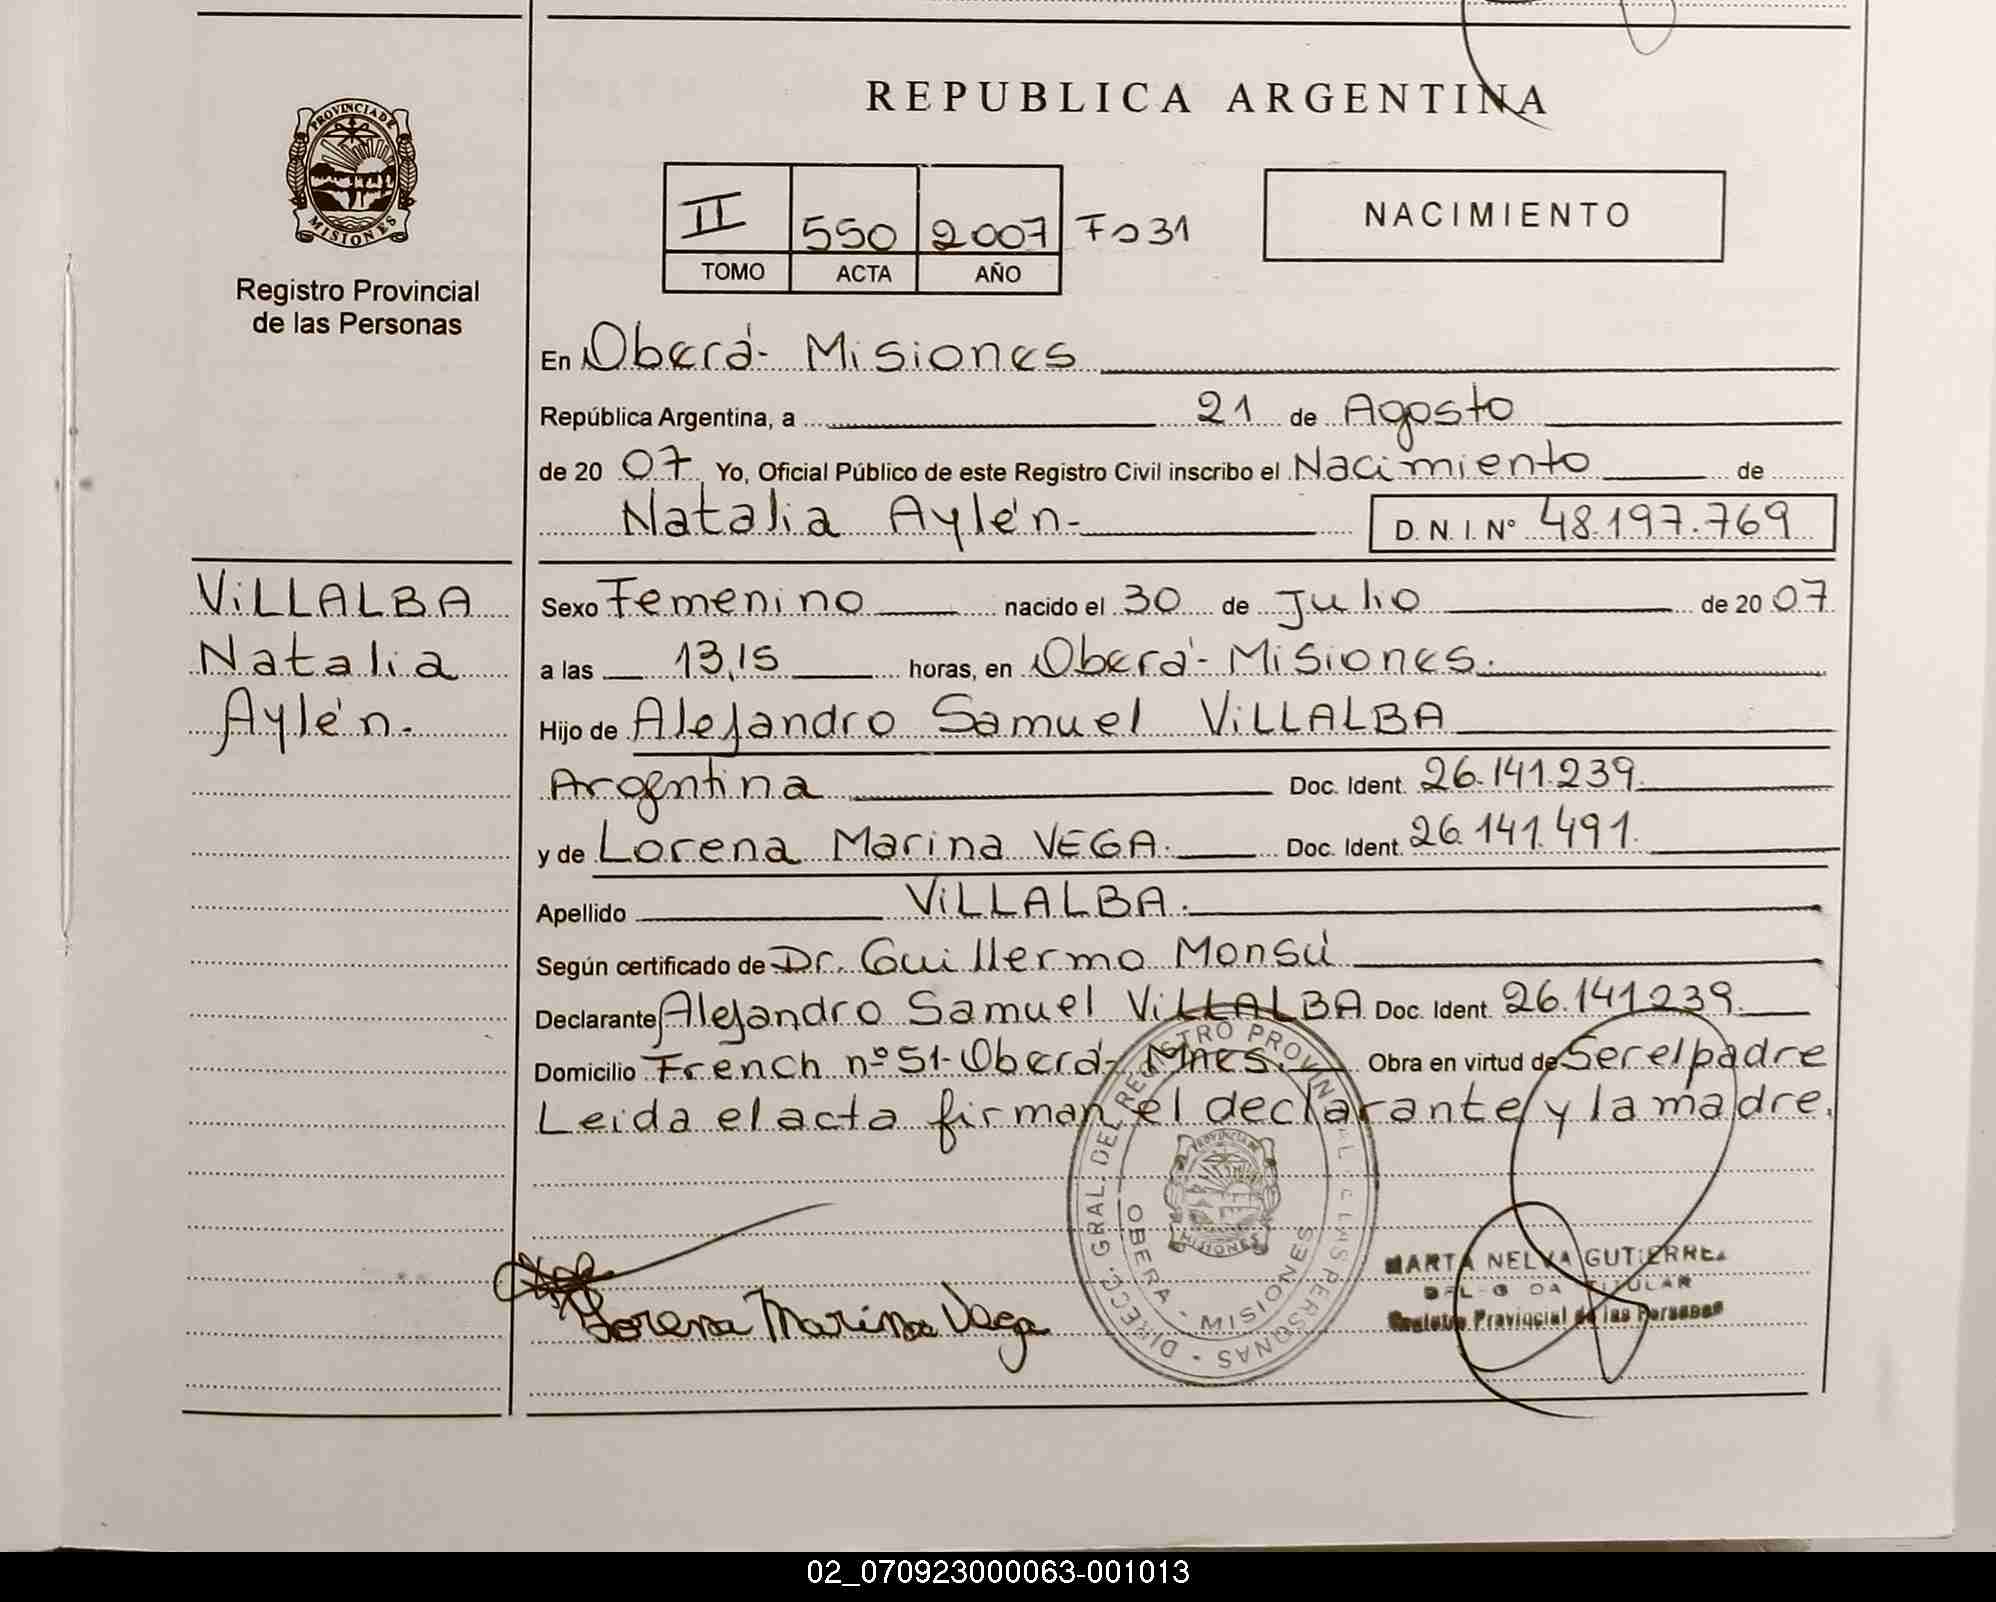 REPUBLICA ARGENTINA
PROVINCIA DE MISIONES
Registro Provincial
de las Personas
II 550 2007 Fo 31
TOMO ACTA AÑO
NACIMIENTO
En Oberá - Misiones
República Argentina, a 21 de Agosto
de 20 07 Yo, Oficial Público de este Registro Civil inscribo el Nacimiento de
Natalia Aylén - D. N. I. Nº 48.197.769
VILLALBA
Natalia
Aylén.
Sexo Femenino nacido el 30 de Julio de 20 07
a las 13,15 horas, en Oberá - Misiones.
Hijo de Alejandro Samuel VILLALBA
Argentina Doc. Ident. 26.141.239.
y de Lorena Marina VEGA. Doc. Ident. 26.141.491.
Apellido VILLALBA.
Según certificado de Dr. Guillermo Monsú
Declarante Alejandro Samuel VILLALBA Doc. Ident. 26.141239.
Domicilio French nº 51 - Oberá - Mnes. Obra en virtud de Ser el padre
Leida el acta firman el declarante y la madre.
Lorena Marina Vega
DIRECC. GRAL. DEL REGISTRO PROVINCIAL DE LAS PERSONAS
PROVINCIA DE MISIONES
OBERA - MISIONES
MARTA NELVA GUTIERREZ
DELEGADA TITULAR
Registro Provincial de las Personas
02_070923000063-001013